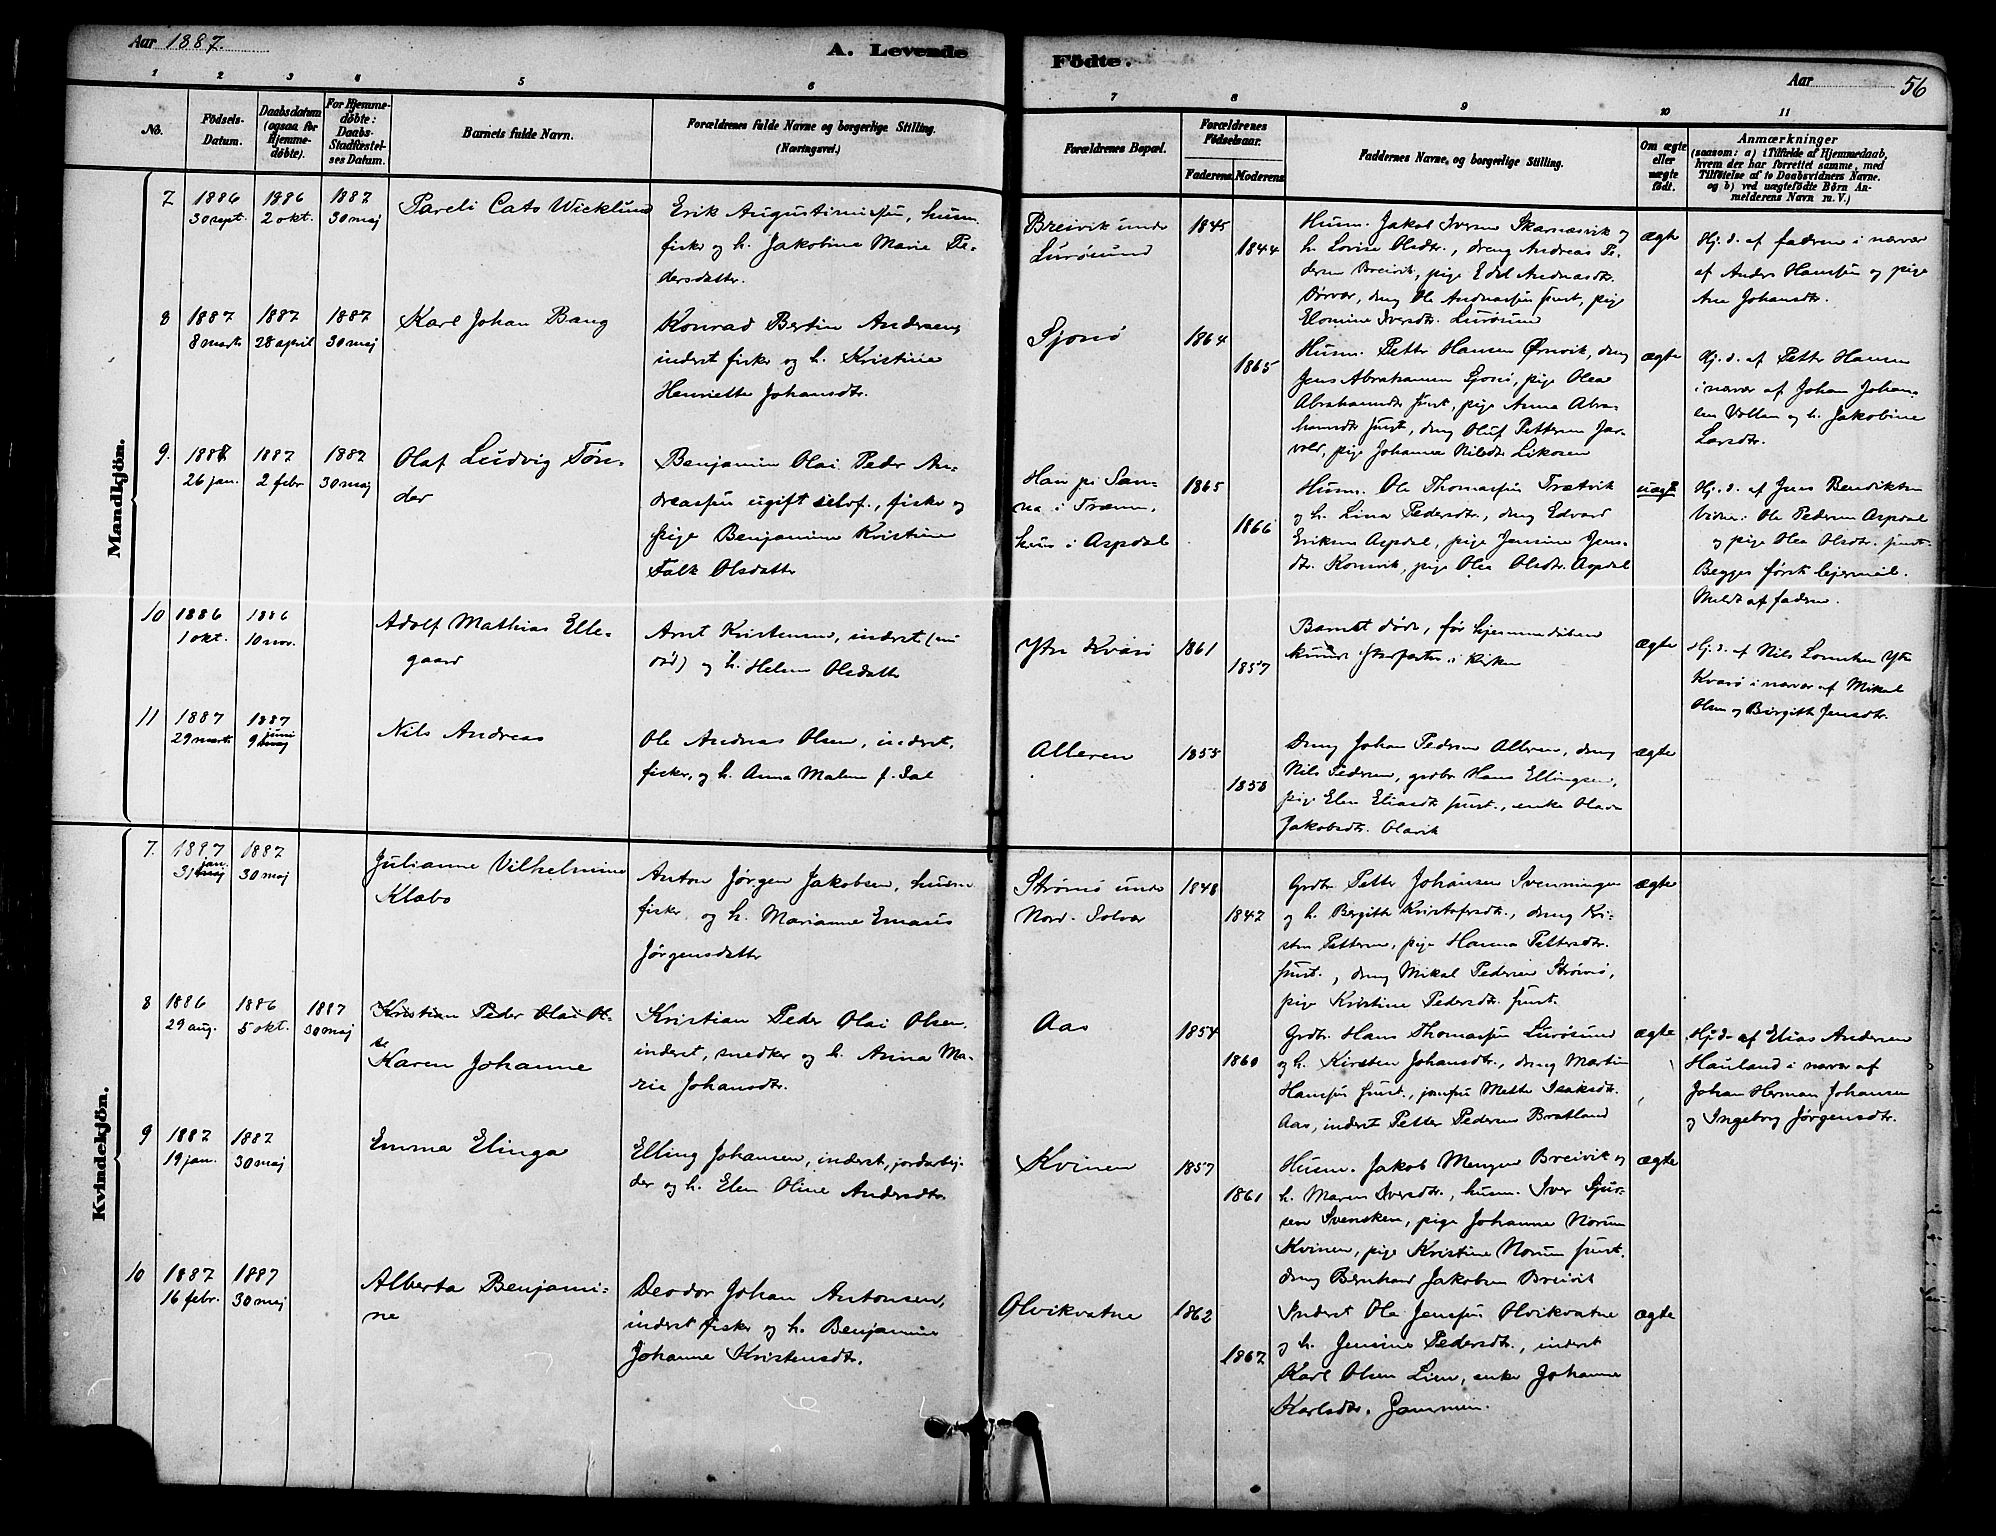 Aar 1887.
A. Levende
Födte.
Aar
56
1 2 3 4 5 6
7 8 9 10 11
No.
Födsels-
Datum.
Daabsdatum
(ogsaa for
Hjemme-
döbte).
For Hjemme-
döbte:
Daabs-
Stadfæstel-
ses Datum.
Barnets fulde Navn.
Forældrenes fulde Navne og borgerlige Stilling.
(Næringsvei.)
Forældrenes Bopæl.
Forældrenes
Födselsaar.
Faderens Moderens
Faddernes Navne, og borgerlige Stilling.
Om ægte
eller
uægte
født.
Anmærkninger
(saasom: a) i Tilfælde af Hjemmedaab,
hvem der har forrettet samme, med
Tilføielse af to Daabsvidners Navne.
og b) ved uægtefödte Börn An-
melderens Navn m. V.)
Mandkjön.
7 1886 1886 1887
30 sept. 2 okt. 30 maj
Pareli Cato Wicklund
Erik Augustinussen, husm.
fisker og h. Jakobine Marie Pe-
dersdatter.
Breivik under
Lurøsund
1845
1844
Husm. Jakob Iversen Skarnæsvik og
h. Lovise Olsdtr., dreng Andreas Pe-
dersen Breivik, pige Edel Andreasdtr.
dreng Ole Andreassen sammest, pige
Iversdtr. Lurøsund
ægte
Hj. d. af faderen i nærvær
af Anders Hansen og pige
Ane Johansdtr.
8 1887 1887 1887
8 marts 28 april 30 maj
Karl Johan Bang
Konrad Bertin Andersen,
inderst fisker og h. Kristine
Henriette Johansdtr.
Sjonø
1864
1865
Husm. Petter Hansen Ørnvik, dreng
Jens Abrahamsen Sjonø, pige Olea
Abrahamsdtr smst., pige Anna Abra-
hamsdtr smst., dreng Oluf Pettersen
pige Johanna Nilsdtr
ægte
Hj. d. af Petter Hansen
i nærvær af Johan Johan-
sen Vollen og h. Jakobine
Larsdtr.
9. 1887 1887 1887
26 jan. 2 febr 30 maj
Olaf Ludvig Tøn-
der
Benjamin Olai Peder An-
dreassen ugift selvf., fisker og
pige Benjamine Kristine
Falk Olsdatter
Han på San-
na i Træna,
hun i Aspdal
1865
1866
Husm. Ole Thomassen Trætvik
og h. Lina Pedersdtr., dreng Edvard
Eriksen Aspdal, pige Jensine Jens-
dtr. Konsvik, pige Olea Olsdtr. Aspdal
uægte
Hj. d. af Jens Bendiktsen
Vidner: Ole Pedersen Aspdal
og pige Olea Olsdtr. smst.
Begges første lejermål.
Meldt af faderen.
10 1886 1886
1 okt. 10 nov.
Adolf Mathias Elle-
gaard
Arnt Kristensen, inderst (nu
død) og h. Helene Olsdatter
Ytre Kvarø
1861
1857
Barnet døde, før hjemmedåben
kunde stadfæstes i kirken
ægte
Hj. d. af Nils Lorentsen Ytre
Kvarø i nærvær af Mikal
Olsen og Birgitte Jensdtr.
11 1887 1887
29 marts 9 juni
Nils Andreas
Ole Andreas Olsen, inderst,
fisker, og h. Anna Malene f. Dal
Alleren
1855
1858
Dreng Johan Pedersen Alleren, dreng
Nils Pedersen, grdbr Hans Ellingsen,
pige Elen Eliasdtr smst., enke
Jakobsdtr. Olavik
ægte
Kvindekjön.
7. 1887 1887
31 jan. 30 maj
Julianne Vilhelmine
Klæbo
Anton Jørgen Jakobsen, husm
fisker og h. Marianne Emaus
Jørgensdatter
Strømø under
Nord. Solvær
1848
1847
Grdbr. Petter Johansen Svenningen
og h. Bergitte Kristofersdtr., dreng Kri-
sten Pettersen, pige Hanna Pettersdtr.
smst., dreng Mikal Pedersen Strømø,
pige Kristine Pedersdtr. smst.
ægte
8 1886 1886 1887
29 aug. 5 okt. 30 maj
Kristian Peder Olai Ol-
se
Karen Johanne
Kristian Peder Olai Olsen
inderst, snedker og h. Anna Ma-
rie Johansdtr.
Aas
1854
1860
Grdbr. Hans Thomassen Lurøsund
og h. Kirsten Johansdtr., dreng Martin
Hansen smst., jomfru Mette Isaksdtr.
Aas, inderst Petter Pedersen Bratland
ægte
Hj. d. af Elias Andersen
Hauland i nærvær af
Johan Herman Johansen
og Ingeborg Jørgensdtr.
9 1887 1887
19 jan. 30 maj
Emma Elinga
Elling Johansen, inderst, jordarbej-
der og h. Elen Oline Andersdtr.
Kvinen
1857
1861
Husm. Jakob Breivik og
h. Maren Iversdtr., husm. Iver Sjur-
sen Svensken, pige Johanne Norum
Kvinen, pige Kristine Norum smst.
dreng Bernhard Jakobsen Breivik
ægte
10 1887 1887
16 febr. 30 maj
Alberta Benjami-
ne
Deodor Johan Antonsen,
inderst fisker og h. Benjamine
Johanne Kristensdtr.
Olvikvatne
1862
1867
Inderst Ole Jenssen Olvikvatne
og h. Jensine Pedersdtr., inderst
Karl Olsen Lien, enke Johanne
Karlsdtr.
ægte